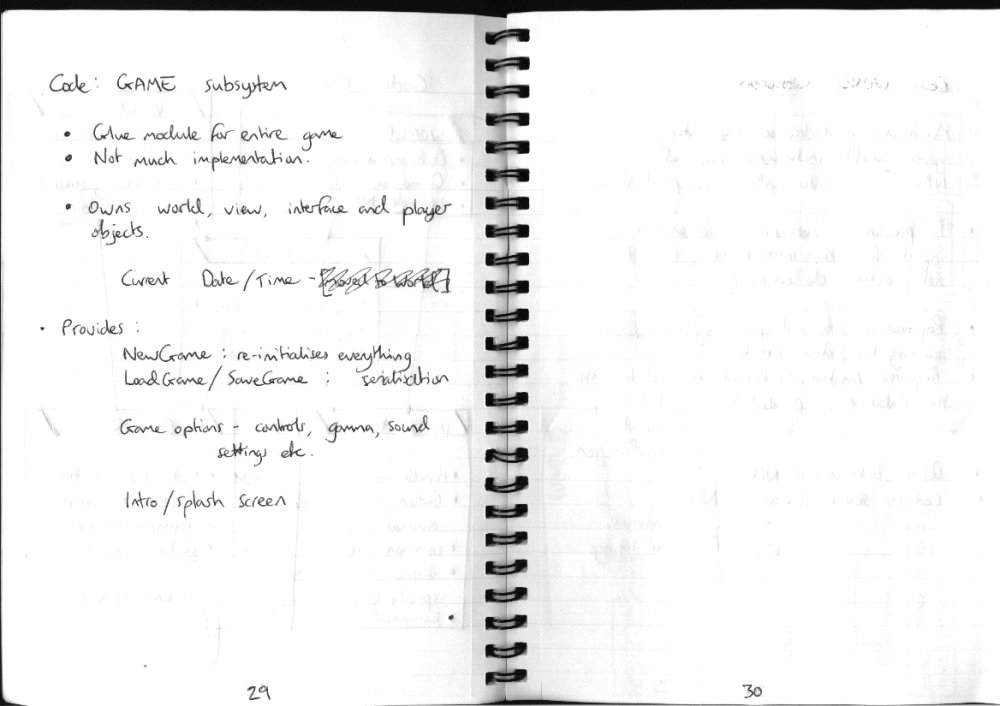 Code: GAME subsystem
• Glue module for entire game
• Not much implementation.
• Owns world, view, interface and player
objects.
Current Date/Time -
• Provides:
NewGame: re-initialises everything
LoadGame/SaveGame: serialisation
Game options - controls, gamma, sound
settings etc.
Intro/splash screen
29
30